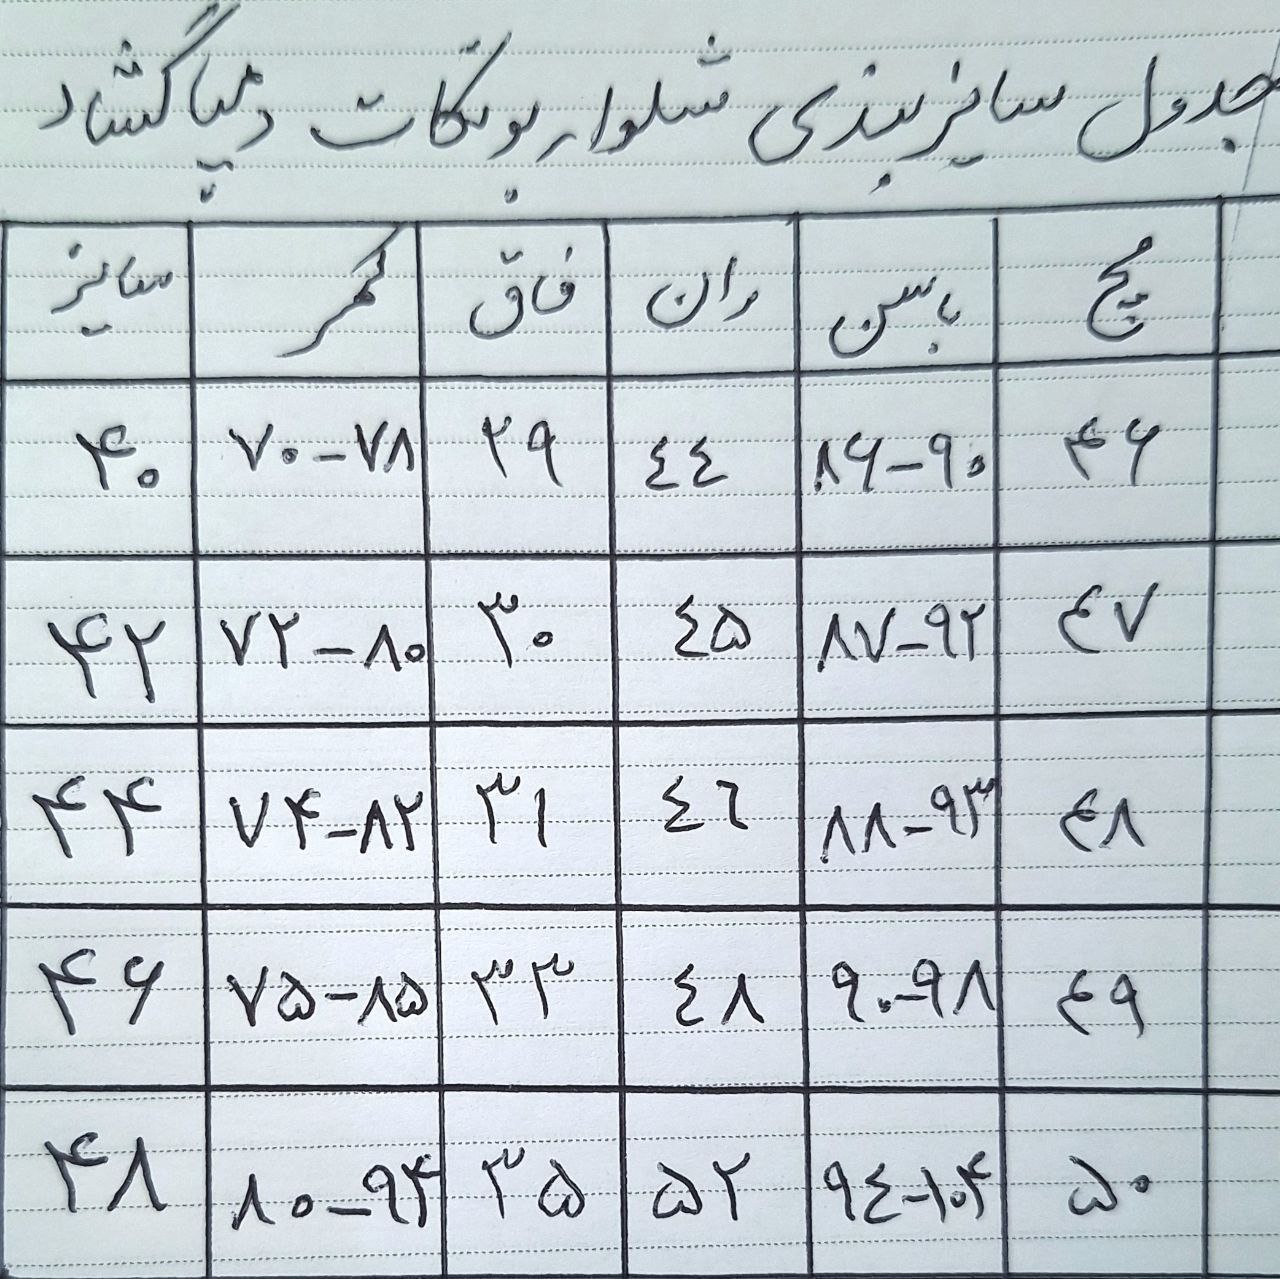 جدول سایزبندی شلوار بوتکات دمپا گشاد
سایز کمر فاق ران باسن مچ
۴۰ ۷۰-۷۸ ۲۹ ٤٤ ۸۶-۹۰ ۴۶
۴۲ ۷۲-۸۰ ۳۰ ٤۵ ۸۷-۹۲ ۴۷
۴۴ ۷۴-۸۲ ۳۱ ٤٦ ۸۸-۹۳ ۴۸
۴۶ ۷۵-۸۵ ۳۳ ٤۸ ۹۰-۹۸ ۴۹
۴۸ ۸۰-۹۴ ۳۵ ۵۲ ۹٤-۱۰۴ ۵۰